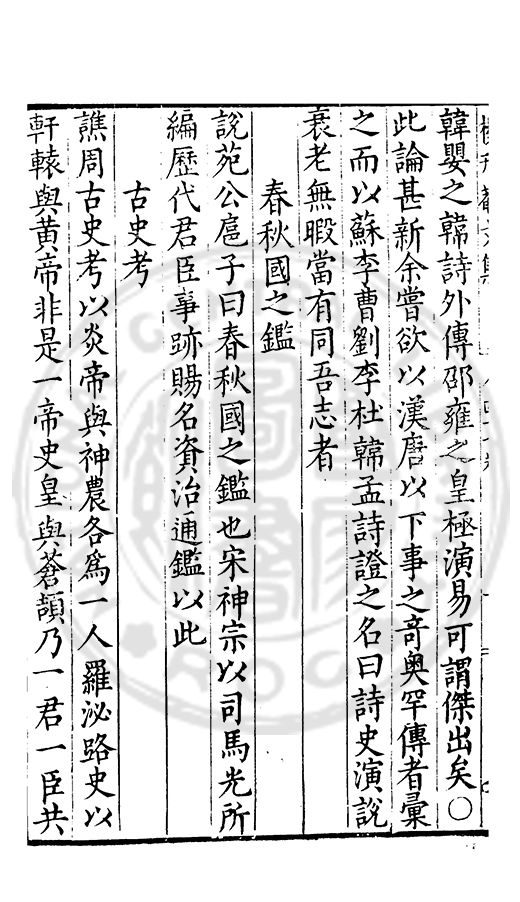 韓嬰之韓詩外傳邵雍之皇極演易可謂傑出矣○
此論甚新余嘗欲以漢唐以下事之奇奧罕傳者彙
之而以蘇李曹劉李杜韓孟詩證之名曰詩史演說
衰老無暇當有同吾志者
春秋國之鑑
說苑公扈子曰春秋國之鑑也宋神宗以司馬光所
編歷代君臣事跡賜名資治通鑑以此
古史考
譙周古史考以炎帝與神農各爲一人羅泌路史以
軒轅與黃帝非是一帝史皇與蒼頡乃一君一臣共